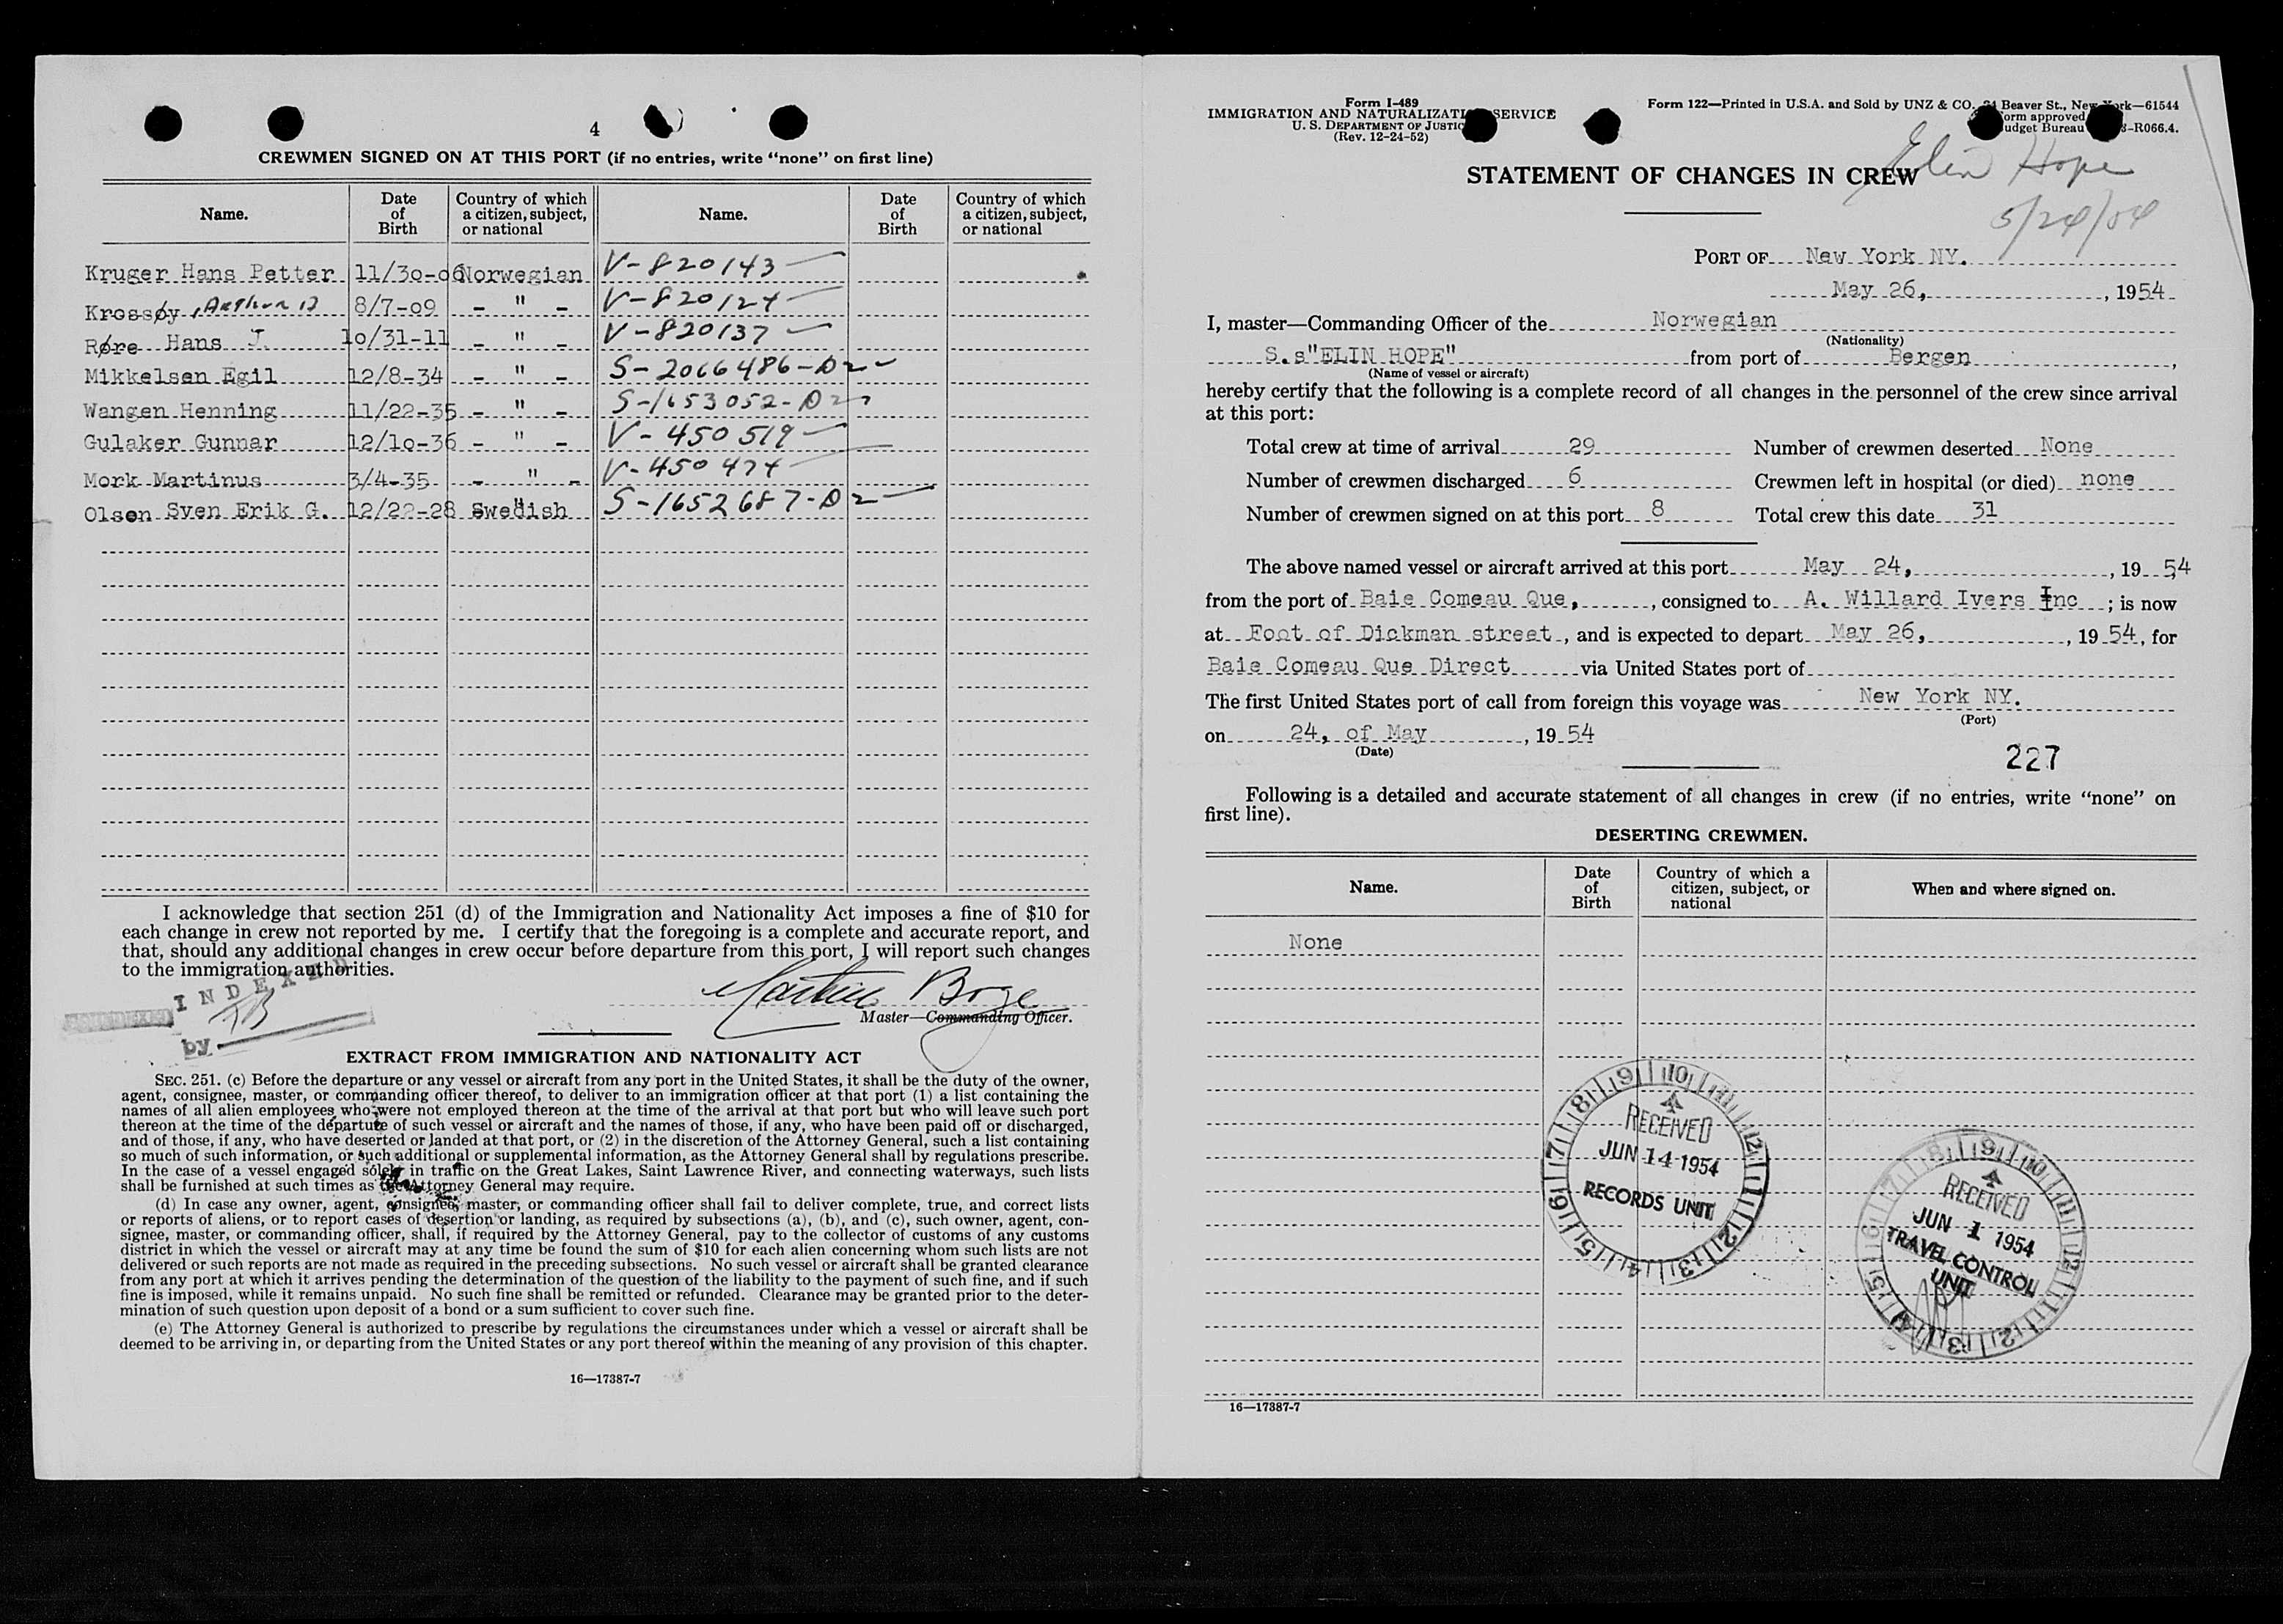 4
CREWMEN SIGNED ON AT THIS PORT (if no entries, write “none” on first line)
Name. Date of Birth Country of which a citizen, subject, or national Name. Date of Birth Country of which a citizen, subject, or national
Kruger Hans Petter 11/30-06 Norwegian V-820143
Krossøy, Arthur 8/7-09 - " - V-820124
Røre Hans J. 10/31-11 - " - V-820137
Mikkelsen Egil 12/8-34 - " - S-2066486-D2
Wangen Henning 11/22-35 - " - S-1653052-D2
Gulaker Gunnar 12/10-36 - " - V-450519
Mork Martinus 3/4-35 - " - V-450474
Olsen Sven Erik G. 12/22-28 Swedish S-1652687-D2
I acknowledge that section 251 (d) of the Immigration and Nationality Act imposes a fine of $10 for
each change in crew not reported by me. I certify that the foregoing is a complete and accurate report, and
that, should any additional changes in crew occur before departure from this port, I will report such changes
to the immigration authorities.
INDEXED
by
Martin Boge
Master—Commanding Officer.
EXTRACT FROM IMMIGRATION AND NATIONALITY ACT
SEC. 251. (c) Before the departure or any vessel or aircraft from any port in the United States, it shall be the duty of the owner,
agent, consignee, master, or commanding officer thereof, to deliver to an immigration officer at that port (1) a list containing the
names of all alien employees who were not employed thereon at the time of the arrival at that port but who will leave such port
thereon at the time of the departure of such vessel or aircraft and the names of those, if any, who have been paid off or discharged,
and of those, if any, who have deserted or landed at that port, or (2) in the discretion of the Attorney General, such a list containing
so much of such information, or such additional or supplemental information, as the Attorney General shall by regulations prescribe.
In the case of a vessel engaged solely in traffic on the Great Lakes, Saint Lawrence River, and connecting waterways, such lists
shall be furnished at such times as the Attorney General may require.
(d) In case any owner, agent, consignee, master, or commanding officer shall fail to deliver complete, true, and correct lists
or reports of aliens, or to report cases of desertion or landing, as required by subsections (a), (b), and (c), such owner, agent, con-
signee, master, or commanding officer, shall, if required by the Attorney General, pay to the collector of customs of any customs
district in which the vessel or aircraft may at any time be found the sum of $10 for each alien concerning whom such lists are not
delivered or such reports are not made as required in the preceding subsections. No such vessel or aircraft shall be granted clearance
from any port at which it arrives pending the determination of the question of the liability to the payment of such fine, and if such
fine is imposed, while it remains unpaid. No such fine shall be remitted or refunded. Clearance may be granted prior to the deter-
mination of such question upon deposit of a bond or a sum sufficient to cover such fine.
(e) The Attorney General is authorized to prescribe by regulations the circumstances under which a vessel or aircraft shall be
deemed to be arriving in, or departing from the United States or any port thereof within the meaning of any provision of this chapter.
16—17387-7
Form I-489
IMMIGRATION AND NATURALIZATION SERVICE
U. S. DEPARTMENT OF JUSTICE
(Rev. 12-24-52)
Form 122—Printed in U.S.A. and Sold by UNZ & CO. 24 Beaver St., New York—61544
Form approved
Budget Bureau -R066.4.
Elin Hope
5/24/54
STATEMENT OF CHANGES IN CREW
PORT OF New York NY.
May 26, , 1954
I, master—Commanding Officer of the Norwegian
(Nationality)
S.s"ELIN HOPE" from port of Bergen ,
(Name of vessel or aircraft)
hereby certify that the following is a complete record of all changes in the personnel of the crew since arrival
at this port:
Total crew at time of arrival 29 Number of crewmen deserted None
Number of crewmen discharged 6 Crewmen left in hospital (or died) none
Number of crewmen signed on at this port 8 Total crew this date 31
The above named vessel or aircraft arrived at this port May 24, , 19 54
from the port of Baie Comeau Que, , consigned to A. Willard Ivers Inc ; is now
at Foot of Dickman street , and is expected to depart May 26, , 19 54, for
Baie Comeau Que Direct via United States port of
The first United States port of call from foreign this voyage was New York NY.
(Port)
on 24, of May , 19 54
(Date)
227
Following is a detailed and accurate statement of all changes in crew (if no entries, write “none” on
first line).
DESERTING CREWMEN.
Name. Date of Birth Country of which a citizen, subject, or national When and where signed on.
None
RECEIVED
JUN 14 1954
RECORDS UNIT
RECEIVED
JUN 1 1954
TRAVEL CONTROL
UNIT
16—17387-7